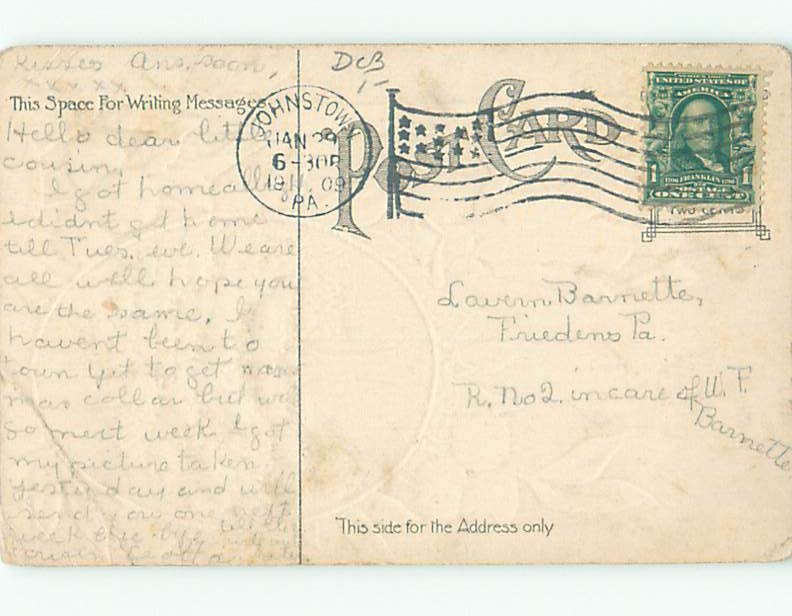 Kisses Ans. soon,
x x x x x
DCB
This Space For Writing Messages
Hello dear little
cousin,
I got home all
I didnt get home
till Tues. eve. We are
all well hope you
are the same. I
havent been to
town yet to get
mas collar but
go next week I got
my picture taken
yesterday and will
send you one next
week
JOHNSTOWN
JAN 29
6-30P
1909
PA.
POST CARD
SERIES 1902
UNITED STATES OF
AMERICA
1 FRANKLIN 1
POSTAGE
ONE CENT
TWO CENTS
Lavern Barnette,
Friedens Pa.
R. No 2. in care of W. F.
Barnette
This side for the Address only